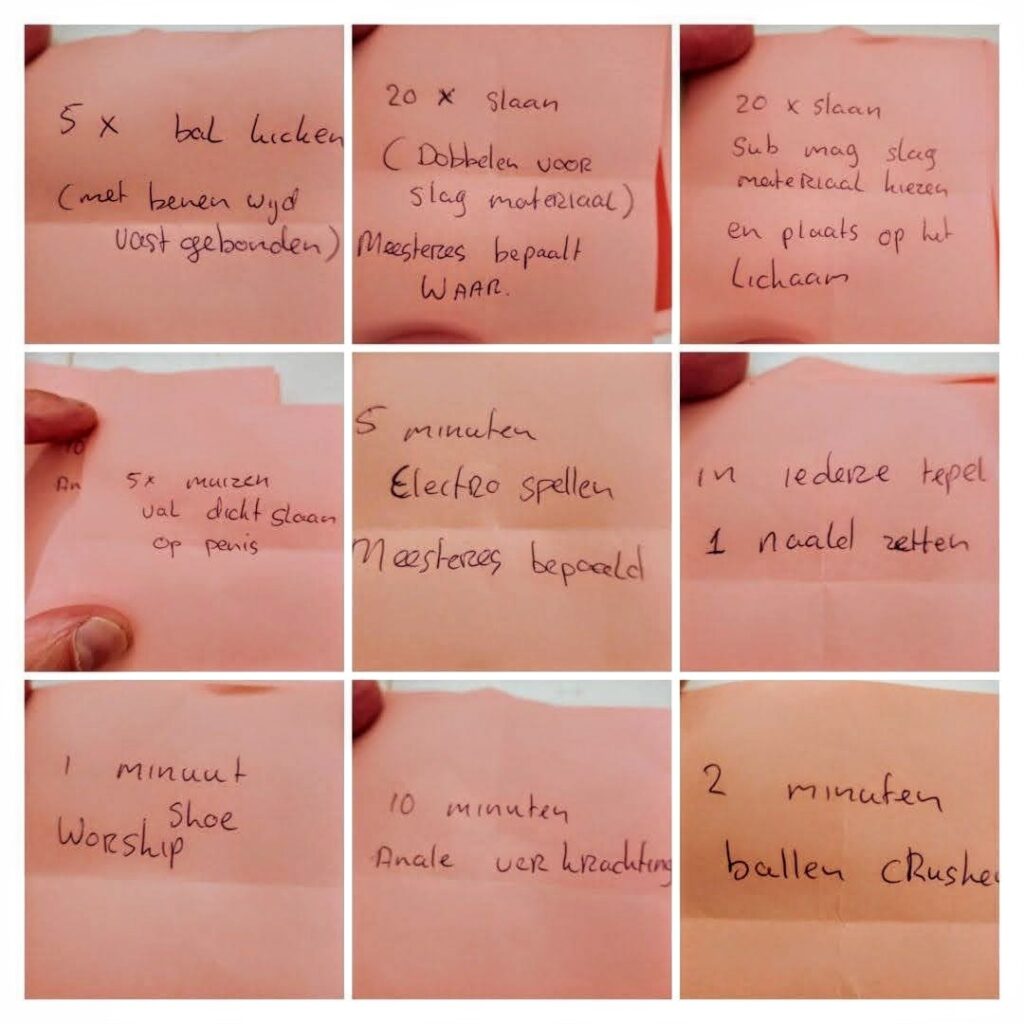 5 x bal kicken
(met benen wijd
vast gebonden)
20 x slaan
(Dobbelen voor
slag materiaal)
Meesteres bepaalt
WAAR.
20 x slaan
Sub mag slag
materiaal kiezen
en plaats op het
lichaam
10
An
5x muizen
val dicht slaan
op penis
5 minuten
Electro spellen
Meesteres bepaald
in iedere tepel
1 naald zetten
1 minuut
Shoe
Worship
10 minuten
Anale verkrachting
2 minuten
ballen crusher